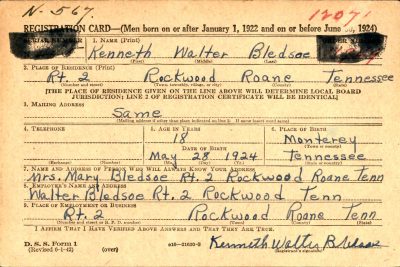 N-567.
12071
REGISTRATION CARD—(Men born on or after January 1, 1922 and on or before June 30, 1924)
SERIAL NUMBER 1. NAME (Print) ORDER NUMBER
Kenneth Walter Bledsoe
(First) (Middle) (Last)
2. PLACE OF RESIDENCE (Print)
Rt. 2 Rockwood Roane Tennessee
(Number and street) (Town, township, village, or city) (County) (State)
[THE PLACE OF RESIDENCE GIVEN ON THE LINE ABOVE WILL DETERMINE LOCAL BOARD
JURISDICTION; LINE 2 OF REGISTRATION CERTIFICATE WILL BE IDENTICAL]
3. MAILING ADDRESS
Same
(Mailing address if other than place indicated on line 2. If same insert word same)
4. TELEPHONE 5. AGE IN YEARS 6. PLACE OF BIRTH
18 Monterey
DATE OF BIRTH (Town or county)
May 28 1924 Tennessee
(Exchange) (Number) (Mo.) (Day) (Yr.) (State or country)
7. NAME AND ADDRESS OF PERSON WHO WILL ALWAYS KNOW YOUR ADDRESS
Mrs. Mary Bledsoe Rt. 2 Rockwood Roane Tenn
8. EMPLOYER'S NAME AND ADDRESS
Walter Bledsoe Rt. 2 Rockwood Tenn
9. PLACE OF EMPLOYMENT OR BUSINESS
Rt. 2 Rockwood Roane Tenn
(Number and street or R. F. D. number) (Town) (County) (State)
I AFFIRM THAT I HAVE VERIFIED ABOVE ANSWERS AND THAT THEY ARE TRUE.
D. S. S. Form 1
(Revised 6-1-42) (over) Kenneth Walter Bledsoe
(Registrant's signature)